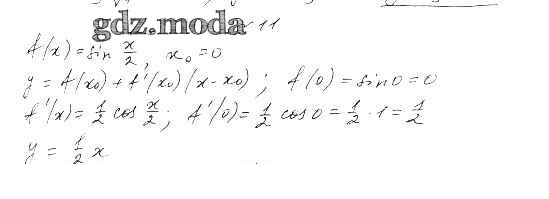 gdz.moda 11
f(x) = sin x/2, x₀ = 0
y = f(x₀) + f'(x₀)(x - x₀); f(0) = sin 0 = 0
f'(x) = 1/2 cos x/2; f'(0) = 1/2 cos 0 = 1/2 · 1 = 1/2
y = 1/2 x